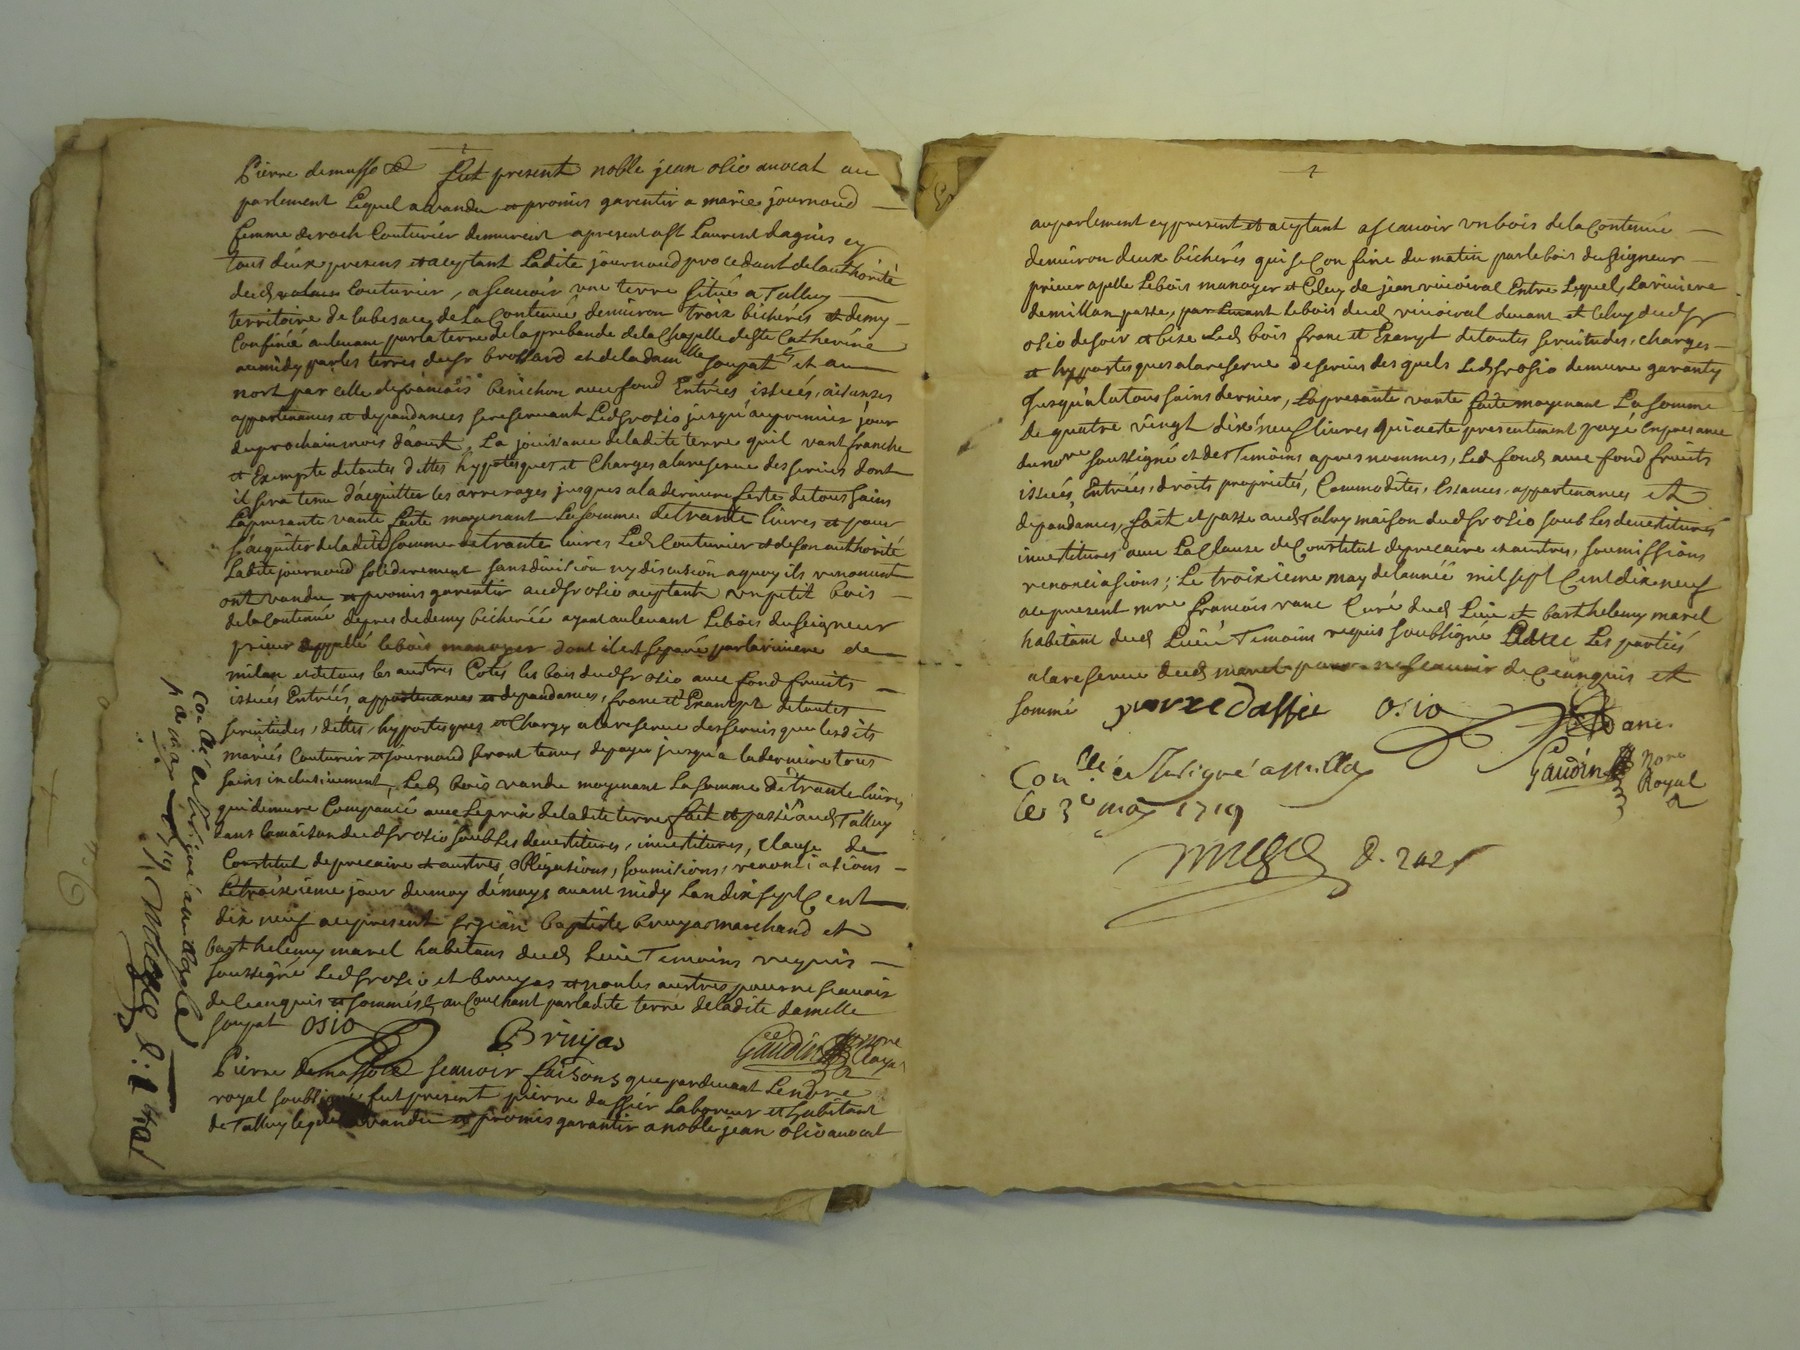 Pierre demasso &c fut present noble jean osio auocat au
parlement Lequel a vandu et promis garentir a marie journoud
femme de roch Couturier demeurent a present a St Laurent dagnis ey
tous deux presens et aceptant Ladite journoud procedant de lauthorité
dud Couturier, a scauoir une terre sitüé a Talluy
territoire de labesace, de La Contenüe denuiron trois bicherés et demy
Confinéé au leuant par la terre de la prebande de la Chapelle de Ste Catherine
au midy par les terres du Sr brossard et de la damlle soupat et au
nort par celle de francois benichon auec fond Entrées issuës, aisances
appartenances et depandances se reseruant Led Sr osio jusqu'au premier jour
du prochain mois d'aoust, La joüissance de ladite terre quil vant franche
et Exempte de toutes dettes hypoteques et Charges a la reserue des seruis dont
il sera tenu d'acquitter les arrerages jusques a la derniere feste de tous sains
La presante vante faite moyenant La somme de trante liures et pour
s'acquiter de ladite somme de trante liures Led Couturier et de son authorité
Ladite journoud solidерement sans diuision ny discusion a quoy ils renoncent
ont vandu et promis garentir aud Sr osio aceptant un petit bois
de la Contenüe de pres de demy bicheréé ayant au leuant Le bois du seigneur
prieur appellé le bois manoyer dont il est separé par la riuiere de
milan et de tous les autres Cotés les bois dud Sr osio auec fond fruits
issuës Entréés, appartenances et depandances, franc et Exampt de toutes
seruitudes, dettes, hypoteques et Charges a la reserue des seruis que lesdits
mariés Couturier et journoud seront tenus de payer jusqu'a la derniere tous
sains inclusiuement, Led bois vandu moyenant La somme de trante liures,
qui demeure Compancé auec Le prix de ladite terre fait et passé aud Talluy
dans la maison dud Sr osio soub les deuestitures, inuestitures, clause de
Constitut de precaire et autres obligations, soumitions, renontiations
Le troisieme jour du moy de may auant midy Lan dix sept Cent
dix neuf au present Sr jean baptiste bruyas marchand et
barthelemy marel habitans dud Lieu Temoins requis
soussigné Led Sr osio et bruyas et non les autres pour ne scauoir
de ce enquis et sommés & au Couchant par ladite terre de ladite damelle
soupat osio Bruyas Gaudin nore Royal
Pierre demasso &c scauoir faisons que par deuant Le nore
royal soubsigné fut present pierre dassier Laboureur et habitant
de Talluy lequel a vandu et promis garantir a noble jean osio auocat
au parlement ey present et aceptant a scauoir un bois de la Contenüe
denuiron deux bicherés qui se Confine du matin par le bois du seigneur
prieur apellé Le bois manoyer et Celuy de jean Entre Lequel La riuiere
de millan passe, par le bois dud deuant et Celuy dud Sr
osio de soir et bize Led bois franc et Exempt de toutes seruitudes, charges
et hypoteques a la reserue de seruis des quels Led Sr osio demeure garanty
jusqu'a la tous sains dernier, La presante vante faite moyenant La somme
de quatre vingt dixe neuf liures qui a este presentement payé en presance
du nore soussigné et des Temoins apres nommes, Led fond auec fond fruits
issuës, Entréés, droits proprietés, Commodités, Essances, appartenances et
depandances, fait et passé aud Taluy maison dud Sr osio soub Les deuestitures
inuestitures auec La Clause de Constitut de precaire et autres, soumissions
renonciasions; Le troisieme may de lannéé mil sept Cent dix neuf
au present mre francois vanc Curé dud Lieu et barthelemy marel
habitant dud Lieu Temoins requis soubsigne Les partiés
a la reserue dud marel pour ne scauoir de Ce enquis et
sommé pierre Dassier Osio
Gaudin Nore Royal
Conllé a
le 3e may 1719